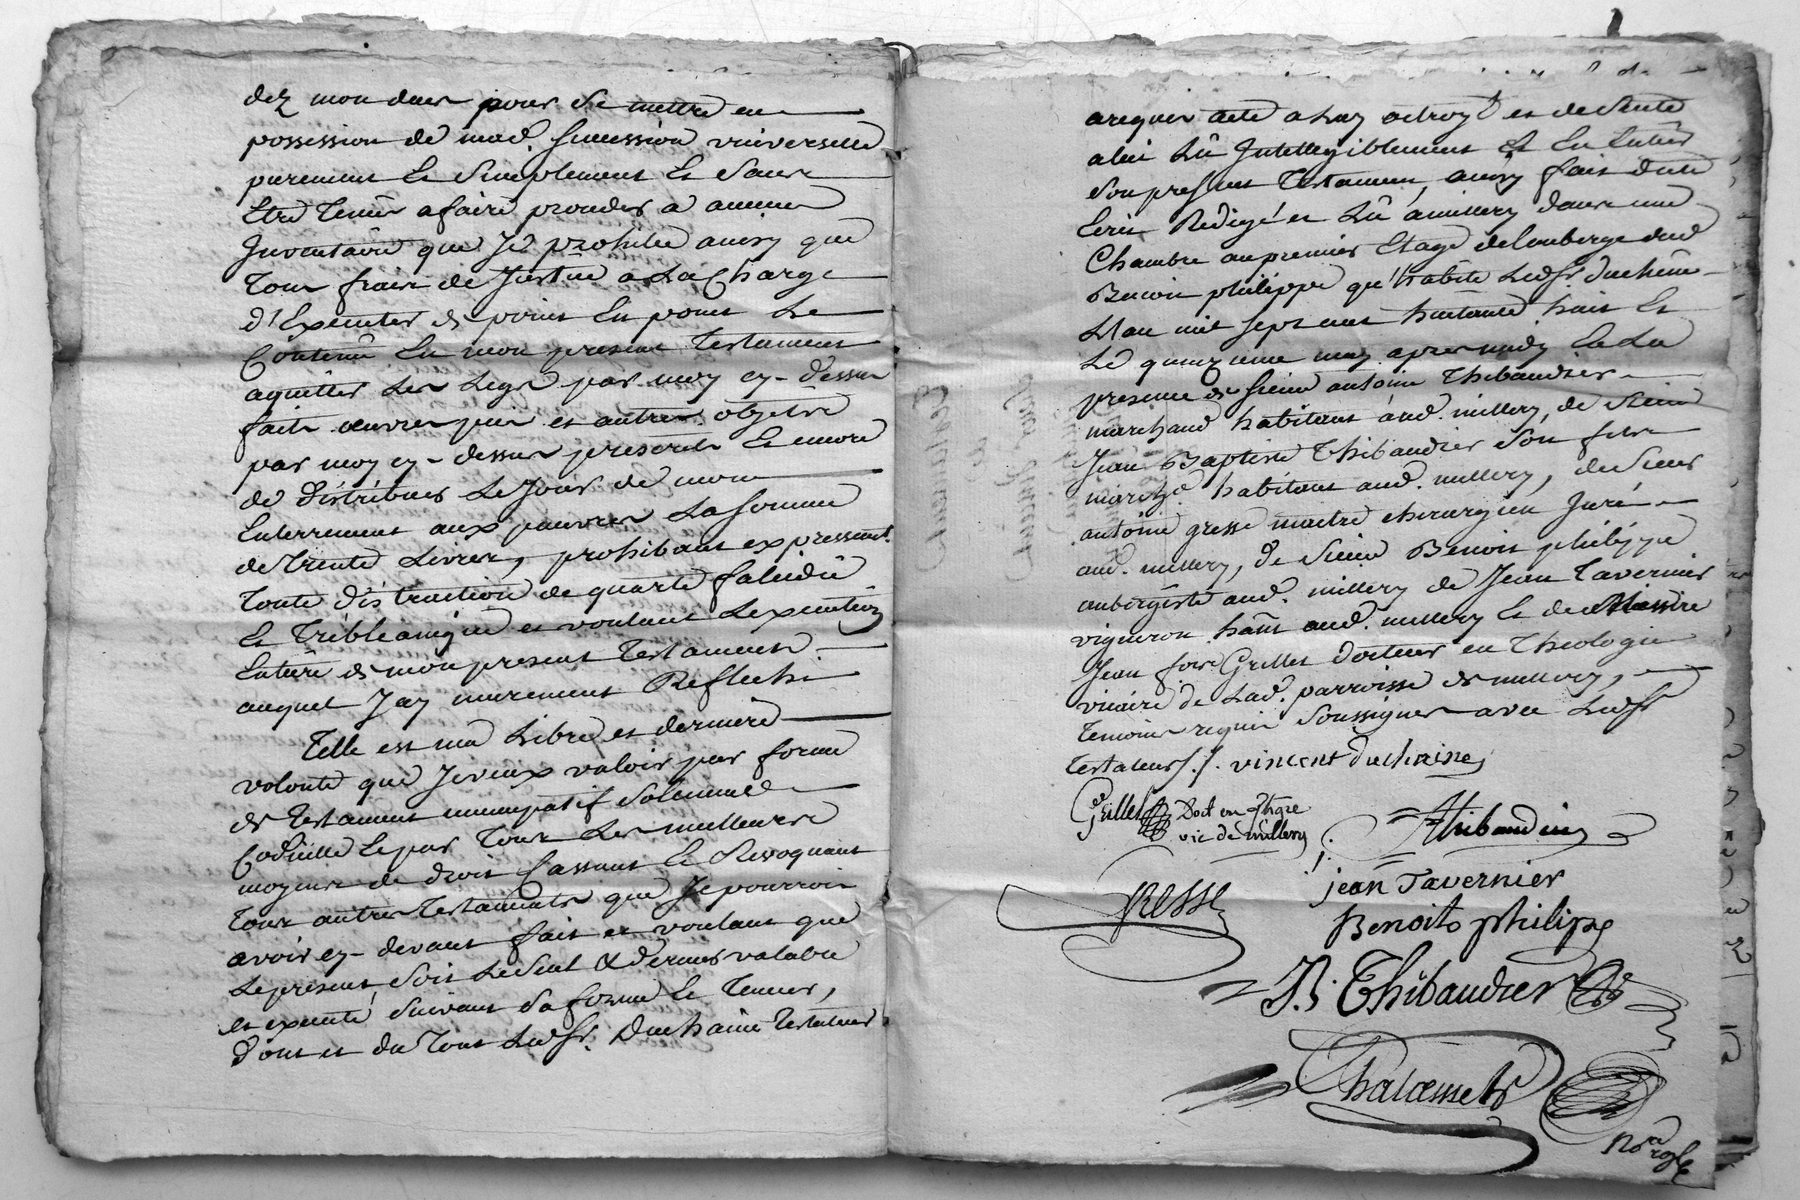 dez mon deces pour se mettre en
possession de mad. succession universelle
purement et simplement et sans
Etre tenu a faire proceder a aucun
Inventaire que Je prohibe ainsy que
tous frais de Justice a La Charge
d'Executer de point en point Le
Contenu En mon present testament
aquitter Les Legs par moy cy-dessus
faits œuvres pies et autres objets
par moy cy-dessus prescrits Et encore
de distribuer Le Jour de mon
Enterrement aux pauvres La somme
de trente Livres, prohibant expressement
toute distraction de quarte falcidie
Et trebleanique et voulant Lexecution
Entiere de mon present testament
auquel Jay murement Reflechi
Telle est ma Libre et derniere
volonté que Je veux valoir par forme
de testament nuncupatif solemnel
Codicille Et par tous Les meilleurs
moyens de droit Cassant Et Revoquant
tous autres testaments que Je pourrois
avoir cy-devant fait et voulant que
Le present soit Le seul & dernier valable
et executé suivant sa forme Et teneur,
dont et du tout Ledsr. Duchaine testateur
a requis acte a Luy octroyé et de suite
a Lui Lû Intelligiblement Et En Entier
son present testament, ainsy fait dicté
Ecrit Redigé et Lû a millery dans une
Chambre au premier Etage de Lauberge dud
Benoit philippe qu'habite Ledsr. duchêne
Lan mil sept cent huitante huit Et
Le quinzieme may apres midy En La
presence de sieur antoine Thibaudier
marchand habitant aud. millery, de sieur
Jean Baptiste Thibaudier son fils
march.d habitant aud. millery, de sieur
antoine gresse maitre chirurgien Juré
aud. millery, de sieur Benoit philippe
aubergiste aud. millery de Jean Tavernier
vigneron habt aud. millery Et de Messire
Jean fois Grillet docteur en Theologie
vicaire de Lad. parroisse de millery,
temoins requis soussignes avec Ledsr
testateur ./. vincent duchaisne
Grillet Doct en
vic de millery
Thibaudier
jean Tavernier
Gresse
Benoit philipe
J.B. Thibaudier
Nre royl